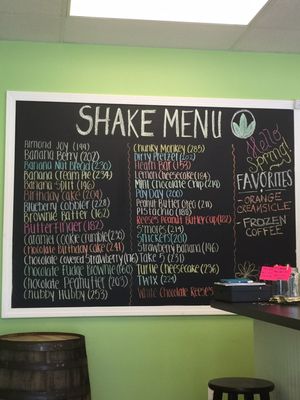 SHAKE MENU
Almond Joy (199)
Banana Berry (202)
Banana Nut Bread (230)
Banana Cream Pie (234)
Banana Split (196)
Birthday Cake (204)
Blueberry Cobbler (228)
Brownie Batter (162)
Butterfinger (182)
Caramel Cookie Crumble (230)
Chocolate Birthday Cake (241)
Chocolate Covered Strawberry (176)
Chocolate Fudge Brownie (160)
Chocolate Peanut Butter
Chubby Hubby (253)
Chunky Monkey (285)
Dirty Pretzel (202)
Heath Bar (153)
Lemon Cheesecake (184)
Mint Chocolate Chip (210)
Pay Day (200)
Peanut Butter
Pistachio (188)
Reese's Peanut Butter Cup (182)
S'mores (214)
Snickers (201)
Strawberry Banana (196)
Take 5 (231)
Turtle Cheesecake (236)
Twix (224)
White Chocolate Reese's
Hello
Spring!
FAVORITES
- ORANGE
CREAMSICLE
- FROZEN
COFFEE